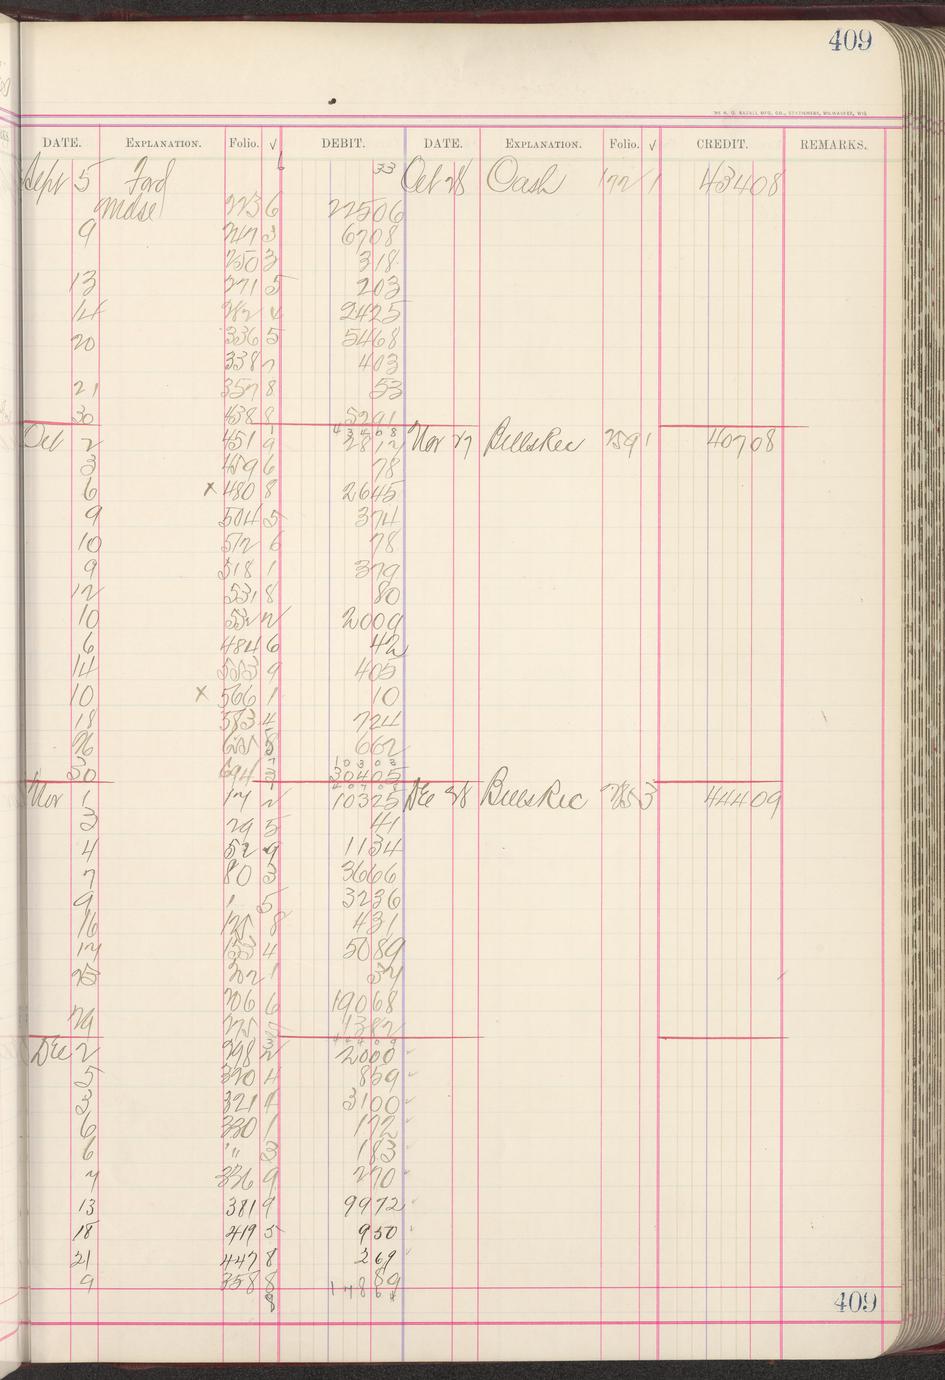 409
DATE. EXPLANATION. Folio. √ DEBIT. DATE. EXPLANATION. Folio. √ CREDIT. REMARKS.
Sept 5 Ford 6 33 Oct 28 Cash 172 1 43408
Mdse 223 6 22506
9 247 3 6708
250 3 318
13 271 5 203
14 282 4 2425
20 336 5 5468
338 7 403
21 357 8 53
30 438 8 5291
43408
Oct 2 451 9 2812 Nov 27 Bills Rec 259 1 40708
3 459 6 78
6 x 480 8 2645
9 504 5 374
10 512 6 78
9 518 1 379
12 531 8 80
10 532 2 2009
6 484 6 42
14 553 9 405
10 x 566 1 10
18 583 4 724
26 8 662
30 694 3 30405
Nov 1 17 2 10325 Dec 28 Bills Rec 285 3 44409
3 29 5 41
4 52 9 1134
7 80 3 3666
9 " 5 3236
16 125 8 431
17 153 4 5089
25 202 1 37
206 6 19068
29 275 5 1382
Dec 2 298 2 2000
5 320 4 859
3 321 4 3100
6 330 1 172
6 " 3 183
7 336 9 270
13 381 9 9972
18 419 5 950
21 447 8 269
9 358 8 89
8 17864
409